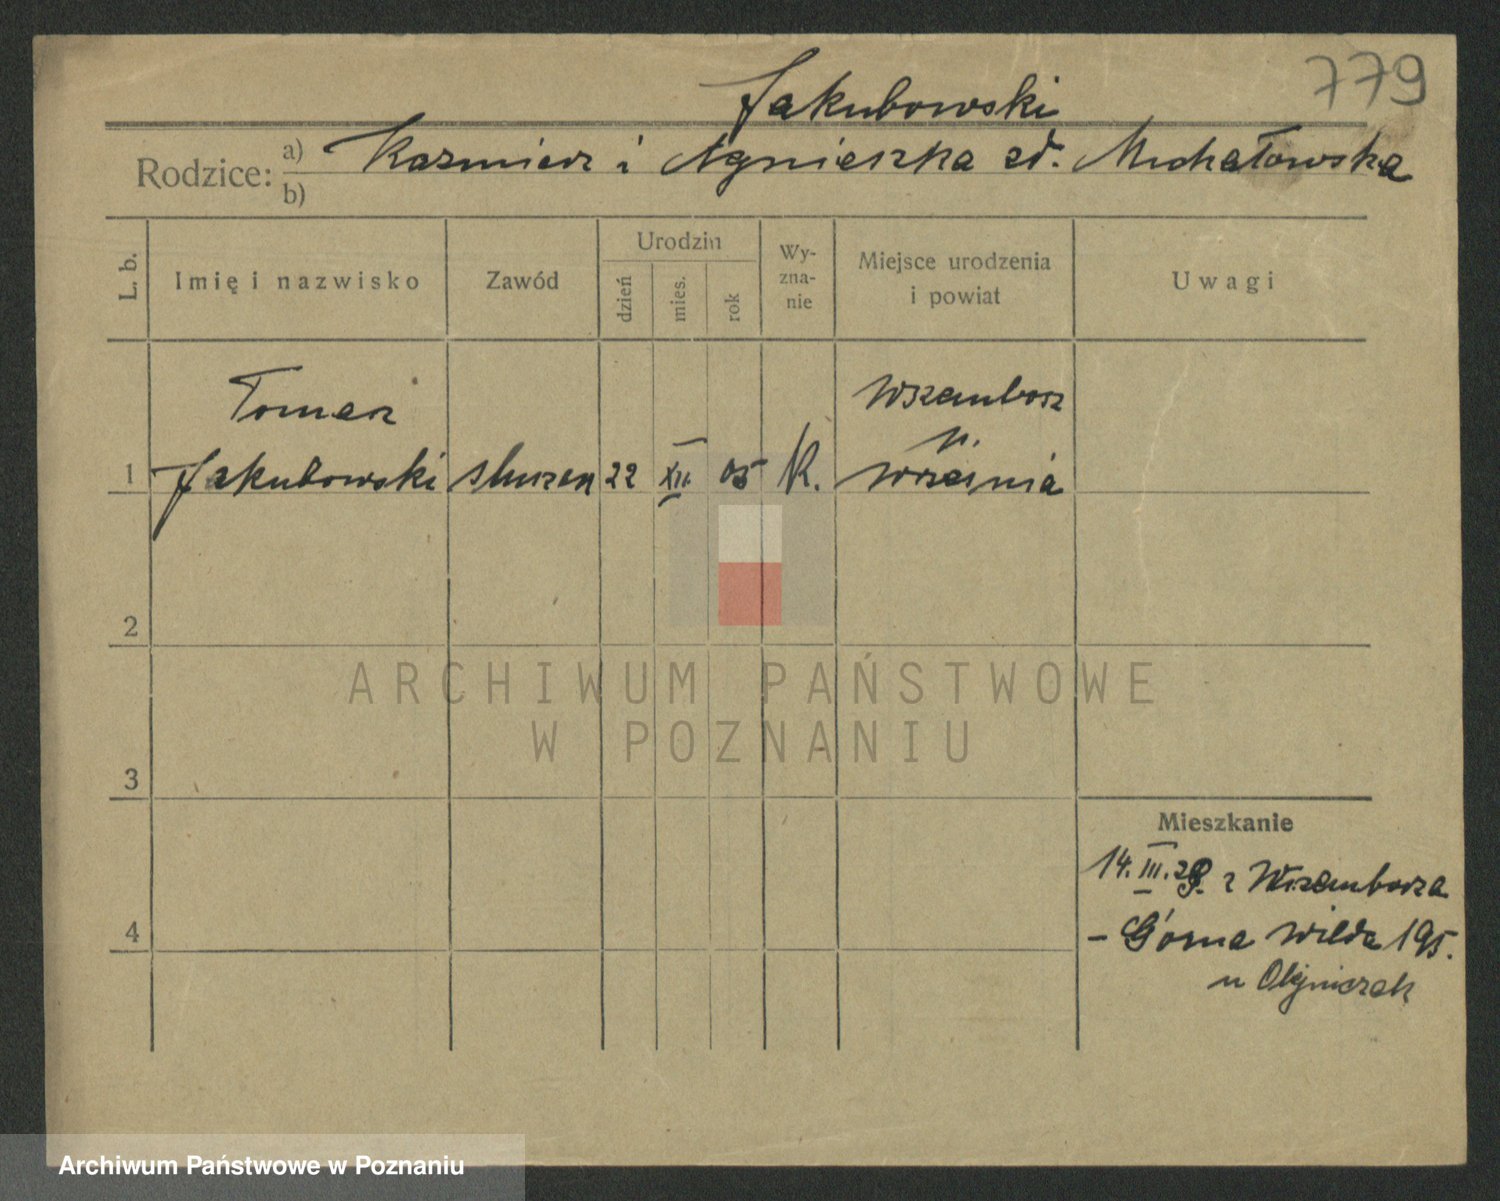 779
Jakubowski
Rodzice: a) Kazmierz i Agnieszka zd. Michałowska
b)
L. b.
Imię i nazwisko
Zawód
Urodzin
dzień
mies.
rok
Wy-
zna-
nie
Miejsce urodzenia
i powiat
Uwagi
Tomasz
Wszembosz
p.
1 Jakubowski 22 XII. 05 K. Września
2
ARCHIWUM PAŃSTWOWE
W POZNANIU
3
Mieszkanie
14. III. 29. z Wszemborza
4
- Górna Wilda 195.
u
Archiwum Państwowe w Poznaniu